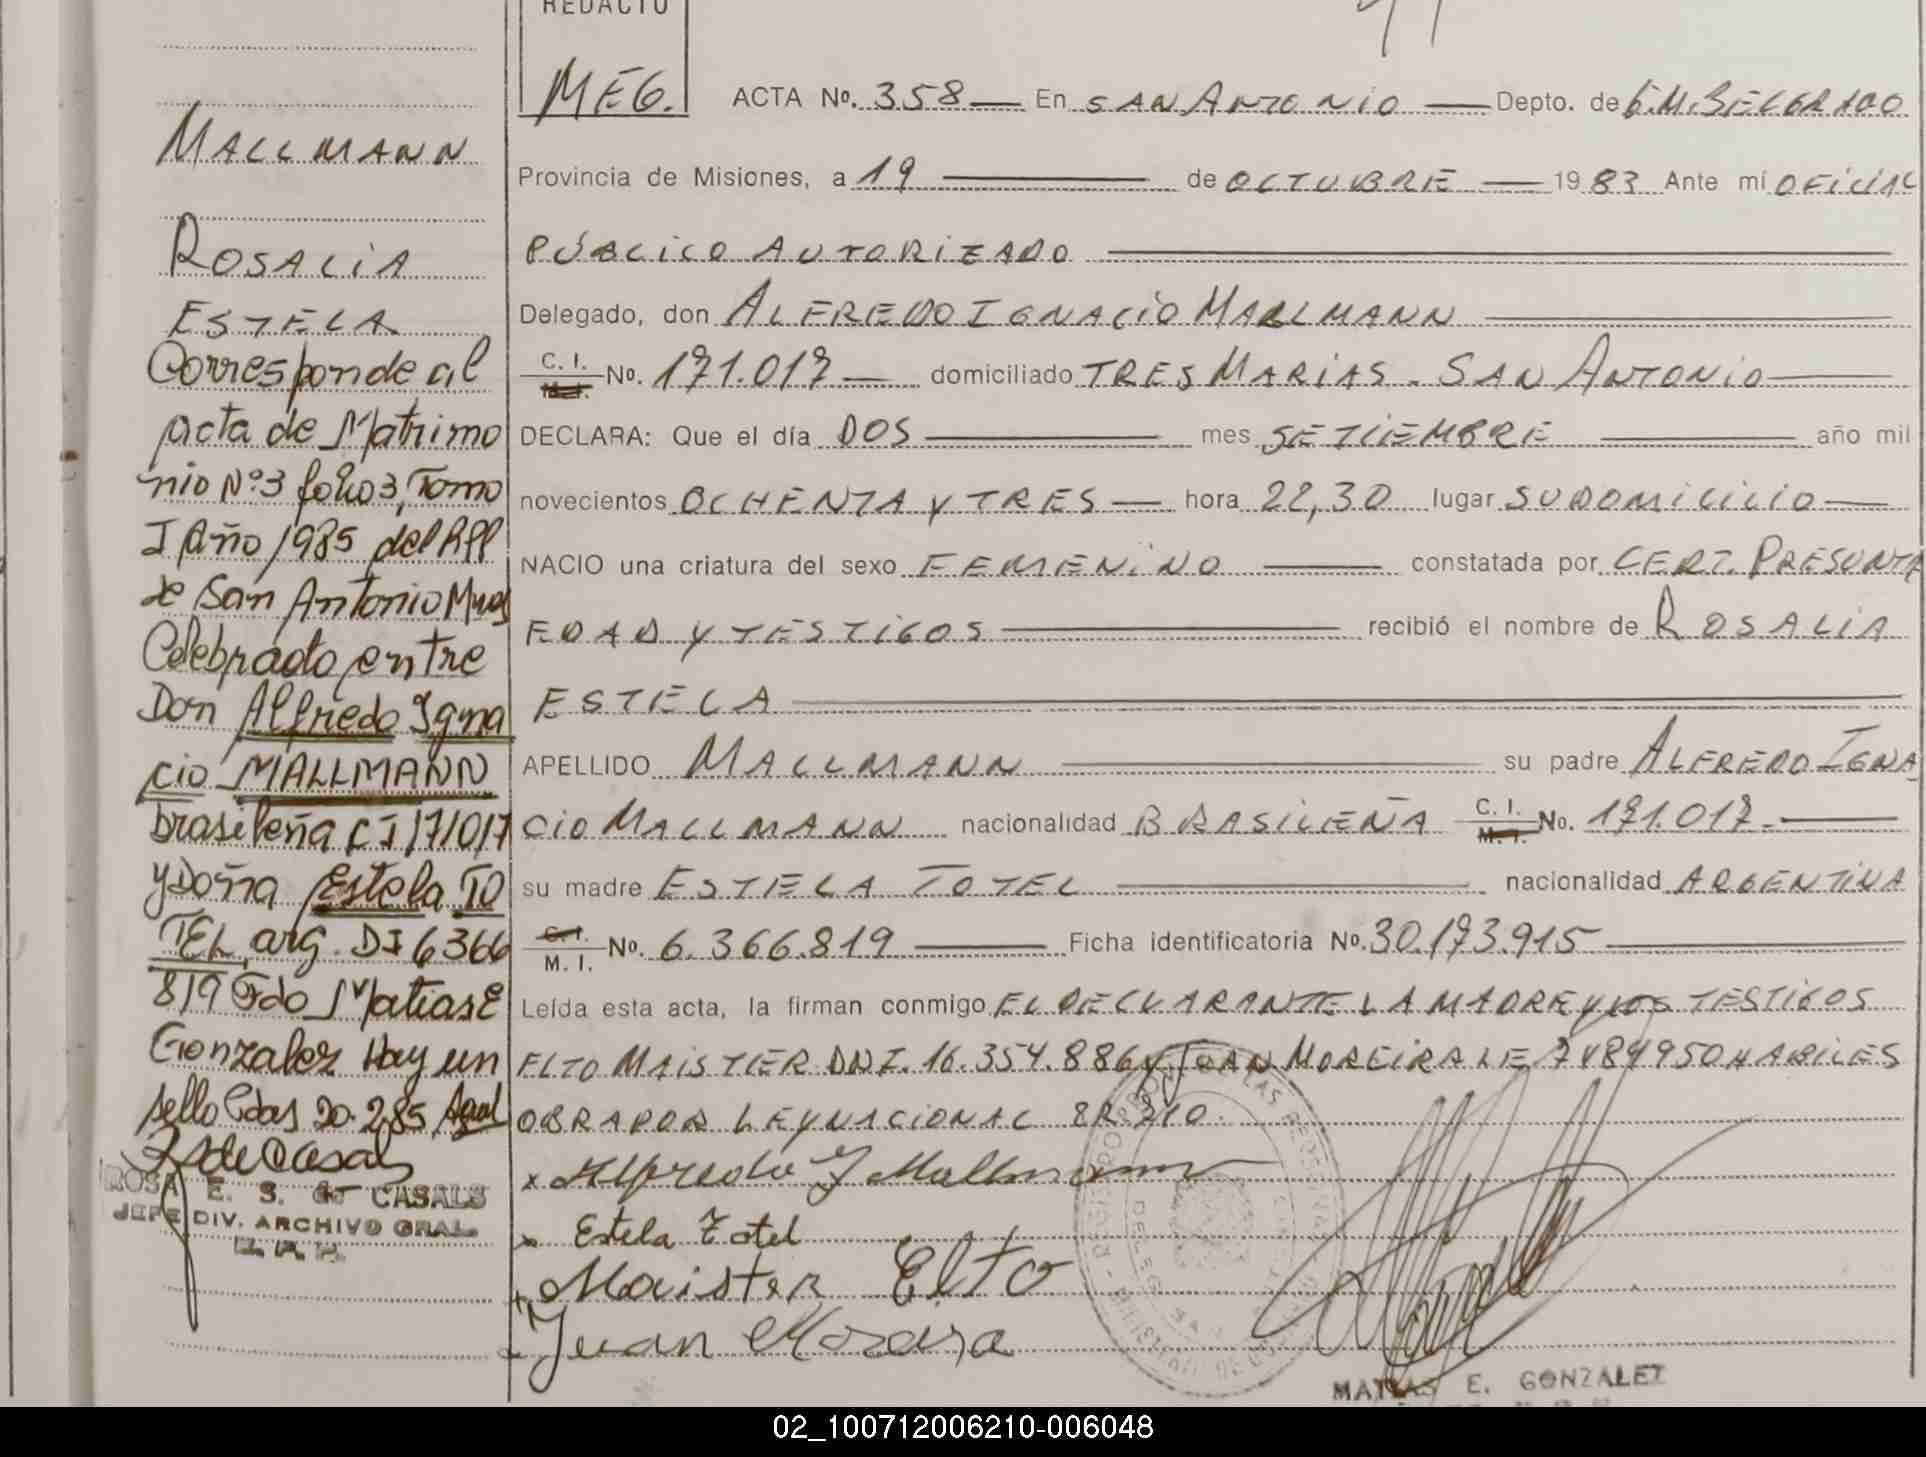 REDACTO
MEG.
MALLMANN
ROSALIA
ESTELA
Corresponde al
acta de Matrimo
nio Nº3 folio 3, Tomo
I Año 1985 del RPP
de San Antonio Mnes
Celebrado entre
Don Alfredo Igna
cio MALLMANN
brasileña CI 171017
y Doña Estela TO
TEL, arg. DI 6366
819 Fdo Matias E
Gonzalez Hay un
sello Cdas 20.2.85
ROSA E. S. de CASALS
JEFE DIV. ARCHIVO GRAL.
ACTA No. 358 — En SAN ANTONIO — Depto. de G.M.BELGRANO
Provincia de Misiones, a 19 — de OCTUBRE — 1983 Ante mí OFICIAL
PÚBLICO AUTORIZADO —
Delegado, don ALFREDO IGNACIO MALLMANN —
C. I. M.I. No. 171.017 — domiciliado TRES MARIAS. SAN ANTONIO —
DECLARA: Que el día DOS — mes SETIEMBRE — año mil
novecientos OCHENTA Y TRES — hora 22,30 lugar SU DOMICILIO —
NACIO una criatura del sexo FEMENINO — constatada por CERT. PRESUNTA
EDAD Y TESTIGOS — recibió el nombre de ROSALIA
ESTELA —
APELLIDO MALLMANN — su padre ALFREDO IGNA
CIO MALLMANN nacionalidad BRASILEÑA C. I. M. I. No. 171.017. —
su madre ESTELA TOTEL — nacionalidad ARGENTINA
C. I. M. I. No. 6.366.819 — Ficha identificatoria No. 30.173.915 —
Leída esta acta, la firman conmigo EL DECLARANTE LA MADRE Y LOS TESTIGOS
ELTO MAISTER DNI. 16.354.886 Y JUAN MOREIRA LE 7484950 HABILES
OBRADOR LEY NACIONAL 22.310.
x Alfredo I Mallmann
x Estela Totel
+ Maister Elto
Juan Moreira
MATIAS E. GONZALEZ
02_100712006210-006048